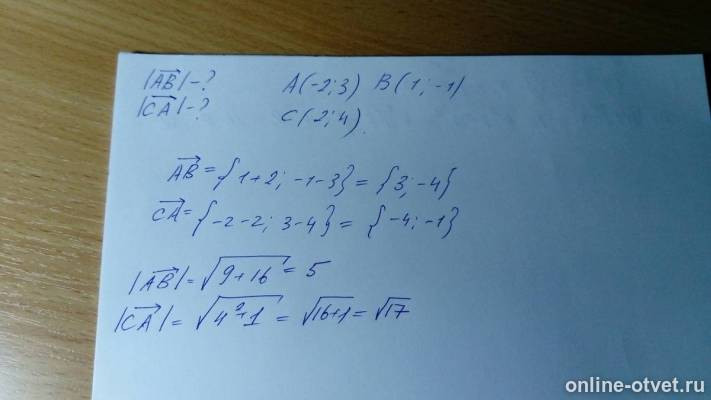 |AB|-? A(-2;3) B(1;-1)
|CA|-? C(2;4)
AB={1+2;-1-3}={3;-4}
CA={-2-2;3-4}={-4;-1}
|AB|=√9+16=5
|CA|=√4²+1=√16+1=√17
online-otvet.ru